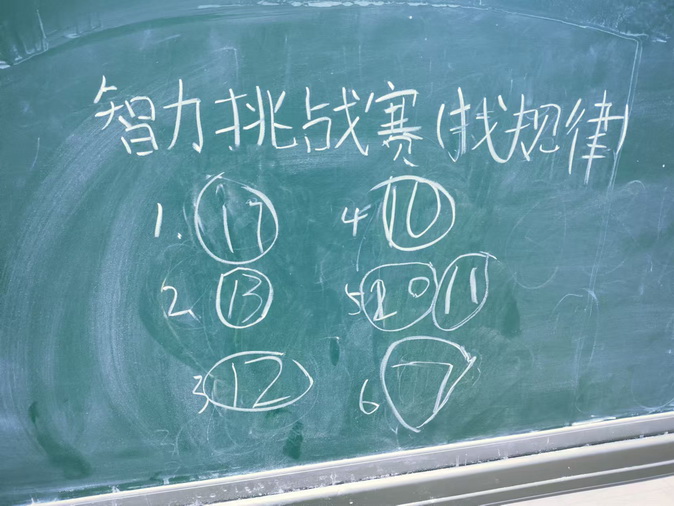 智力挑战赛(找规律)
1. 17
2. 13
3 12
4 10
5 20 11
6 7